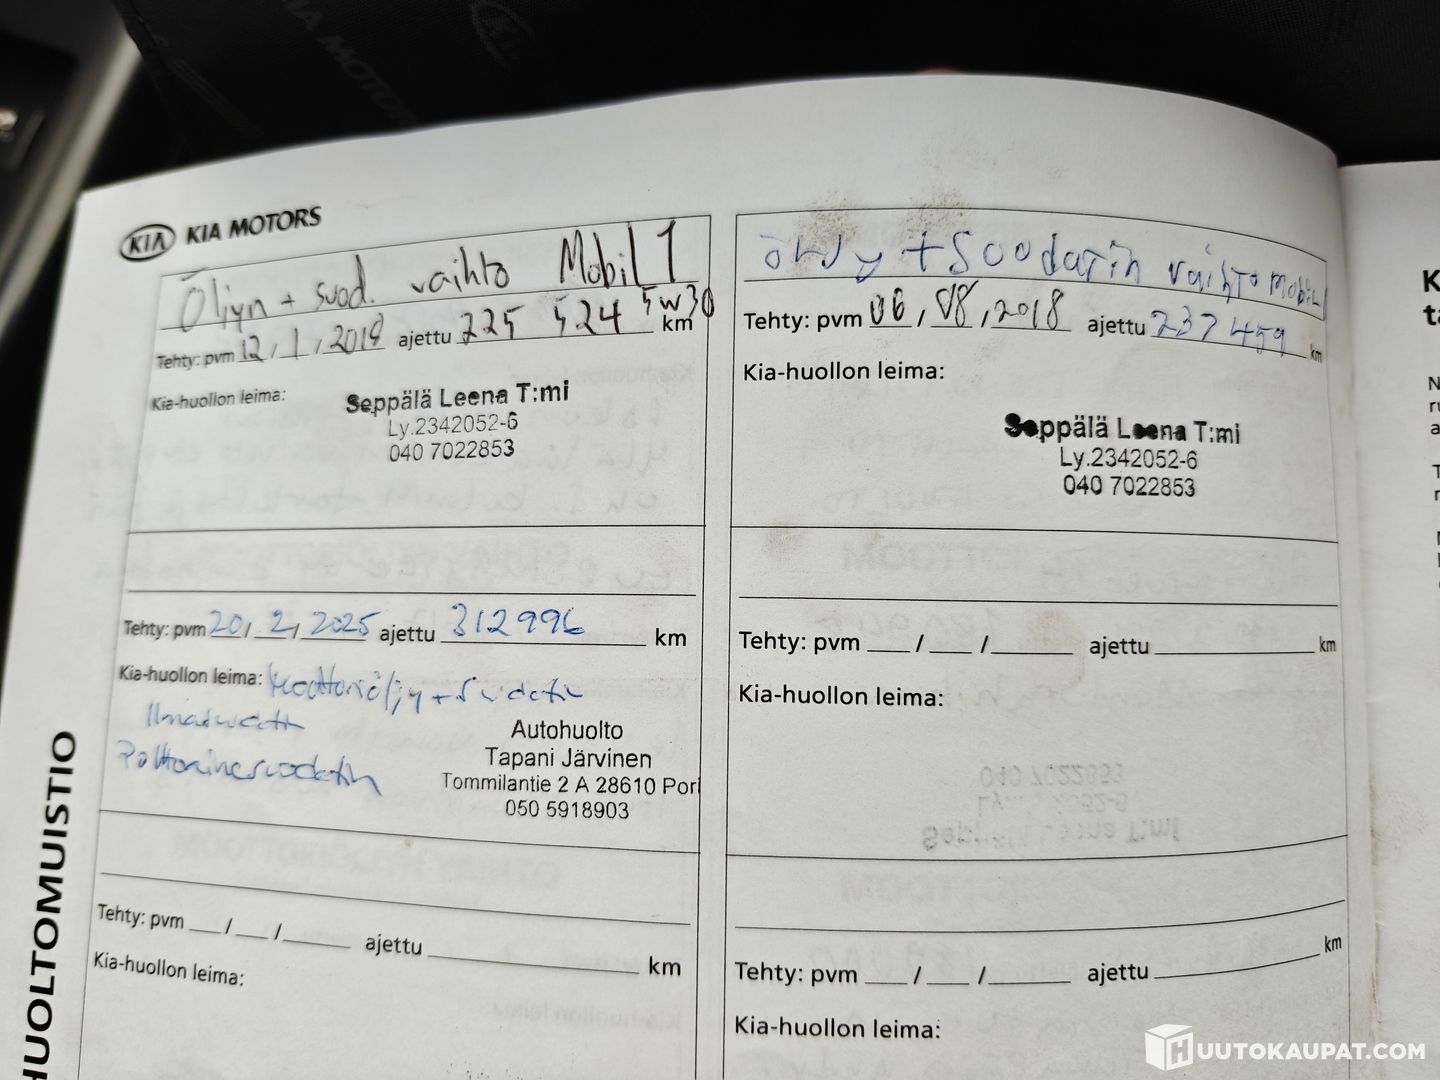 KIA KIA MOTORS
Öljyn + suod. vaihto Mobil 1
5w30
Tehty: pvm 12 / 1 / 2018 ajettu 225 524 km
Kia-huollon leima:
Seppälä Leena T:mi
Ly.2342052-6
040 7022853
Tehty: pvm 20 / 2 / 2025 ajettu 312996 km
Kia-huollon leima: Moottoriöljy + Suodatin
Ilmansuodatin
Polttoainesuodatin
Autohuolto
Tapani Järvinen
Tommilantie 2 A 28610 Pori
050 5918903
Tehty: pvm / / ajettu km
Kia-huollon leima:
+ Suodatin vaihto Mobil 1
Tehty: pvm 06 / 08 / 2018 ajettu 237 459 km
Kia-huollon leima:
Seppälä Leena T:mi
Ly.2342052-6
040 7022853
Tehty: pvm / / ajettu km
Kia-huollon leima:
Tehty: pvm / / ajettu km
Kia-huollon leima:
HUOLTOMUISTIO
HUUTOKAUPAT.COM